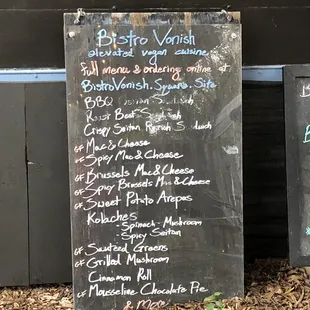 Bistro Vonish
elevated vegan cuisine
full menu & ordering online at
BistroVonish.Square.Site
BBQ Seitan Sandwich
Roast Beef Sandwich
Crispy Seitan Ranch Sandwich
GF Mac & Cheese
GF Spicy Mac & Cheese
GF Brussels Mac & Cheese
GF Spicy Brussels Mac & Cheese
GF Sweet Potato Arepas
Kolaches
- Spinach - Mushroom
- Spicy Seitan
GF Sauteed Greens
GF Grilled Mushroom
Cinnamon Roll
GF Mousseline Chocolate Pie
& More!